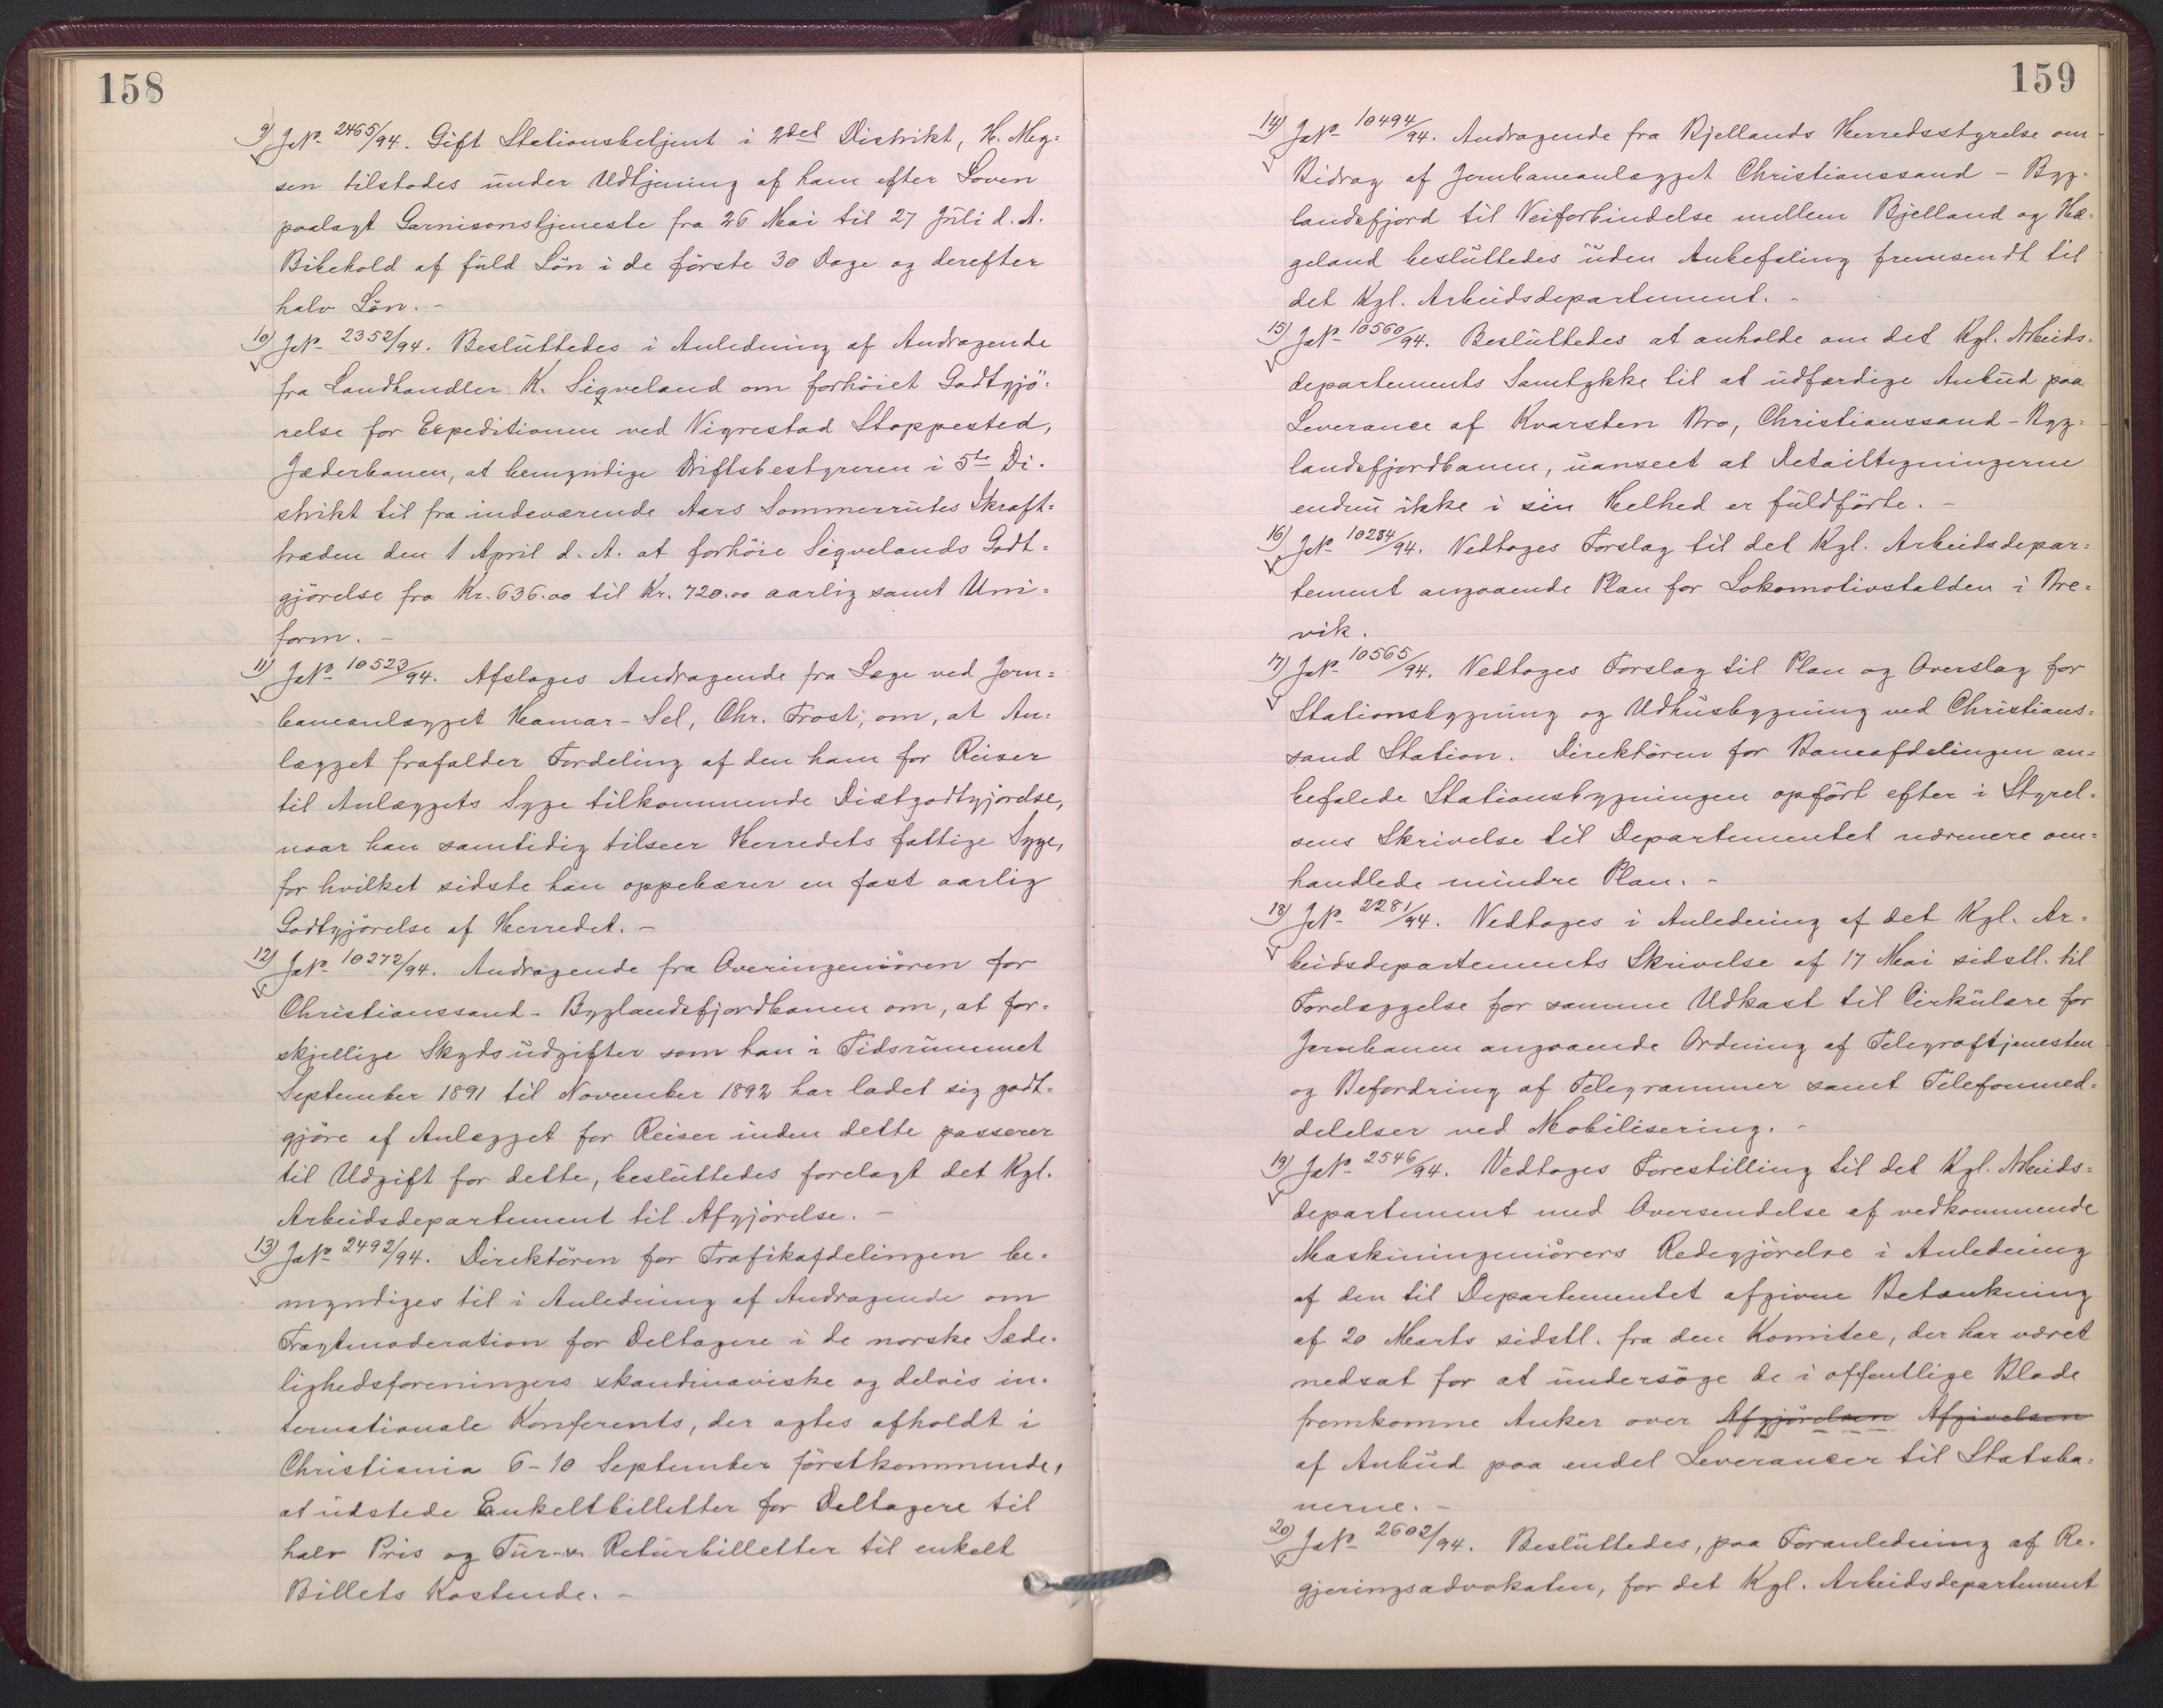 158
9) JNo 2465/94. Gift Stationsbetjent i 2det Distrikt, H. Meg-
sen tilstodes under Udtjening af ham efter Loven
paalagt Garnisonstjeneste fra 26 Mai til 27 Juli d. A.
Bibehold af fuld Lön i de förste 30 Dage og derefter
halv Lön. -
10) JNo 2352/94. Besluttedes i Anledning af Andragende
fra Landhandler K. Sigveland om forhöiet Godtgjö-
relse for Expeditionen ved Vigrestad Stoppested,
Jæderbanen, at bemyndige Driftsbestyreren i 5te Di-
strikt til fra indeværende Aars Sommerrutes Ikraft-
træden den 1 April d. A. at forhöie Sigvelands Godt-
gjörelse fra Kr. 636.00 til Kr. 720.00 aarlig samt Uni-
form. -
11) JNo 10523/94. Afslages Andragende fra Læge ved Jern-
baneanlægget Hamar - Sel, Chr. Frost, om, at An-
lægget frafalder Fordeling af den ham for Reiser
til Anlæggets Syge tilkommende Diætgodtgjörelse,
naar han samtidig tilseer Herredets fattige Syge,
for hvilket sidste han oppebærer en fast aarlig
Godtgjörelse af Herredet. -
12) JNo 10272/94. Andragende fra Overingeniören for
Christianssand - Byglandsfjordbanen om, at for-
skjellige Skydsudgifter som han i Tidsrummet
September 1891 til November 1892 har ladet sig godt-
gjöre af Anlægget for Reiser inden dette passerer
til Udgift for dette, besluttedes forelagt det Kgl.
Arbeidsdepartement til Afgjörelse. -
13) JNo 2492/94. Direktören for Trafikafdelingen be-
myndiges til i Anledning af Andragende om
Fragtmoderation for Deltagere i de norske Sæde-
lighedsforeningers skandinaviske og delvis in-
ternationale Konferents, der agtes afholdt i
Christiania 6-10 September förstkommende,
at udstede Enkeltbilletter for Deltagere til
halv Pris og Tur- & Returbilletter til enkelt
Billets Kostende. -
159
14) JNo 10494/94. Andragende fra Bjellands Herredsstyrelse om
Bidrag af Jernbaneanlægget Christianssand - Byg-
landsfjord til Veiforbindelse mellem Bjelland og Hæ-
geland besluttedes uden Anbefaling fremsendt til
det Kgl. Arbeidsdepartement. -
15) JNo 10560/94. Besluttedes at anholde om det Kgl. Arbeids-
departements Samtykke til at udfærdige Anbud paa
Leverance af Kvarsten Bro, Christianssand - Byg-
landsfjordbanen, uanseet at Detailtegningerne
endnu ikke i sin Helhed er fuldförte. -
16) JNo 10284/94. Vedtoges Forslag til det Kgl. Arbeidsdepar-
tement angaaende Plan for Lokomotivstalden i Bre-
vik.
17) JNo 10565/94. Vedtoges Forslag til Plan og Overslag for
Stationsbygning og Udhusbygning ved Christians-
sand Station. Direktören for Baneafdelingen an-
befalede Stationsbygningen opfört efter i Styrel-
sens Skrivelse til Departementet nærmere om-
handlede mindre Plan. -
18) JNo 2281/94. Vedtoges i Anledning af det Kgl. Ar-
beidsdepartements Skrivelse af 17 Mai sidstl. til
Forelæggelse for samme Udkast til Cirkulære for
Jernbanen angaaende Ordning af Telegraftjenesten
og Befordring af Telegrammer samt Telefonmed-
delelser ved Mobilisering. -
19) JNo 2546/94. Vedtoges Forestilling til det Kgl. Arbeids-
departement med Oversendelse af vedkommende
Maskiningeniörers Redegjörelse i Anledning
af den til Departementet afgivne Betænkning
af 20 Marts sidstl. fra den Komitee, der har været
nedsat for at undersöge de i offentlige Blade
fremkomne Anker over Afgjörelsen Afgivelsen
af Anbud paa endel Leverancer til Statsba-
nerne. -
20) JNo 2602/94. Besluttedes, paa Foranledning af Re-
gjeringsadvokaten, for det Kgl. Arbeidsdepartement